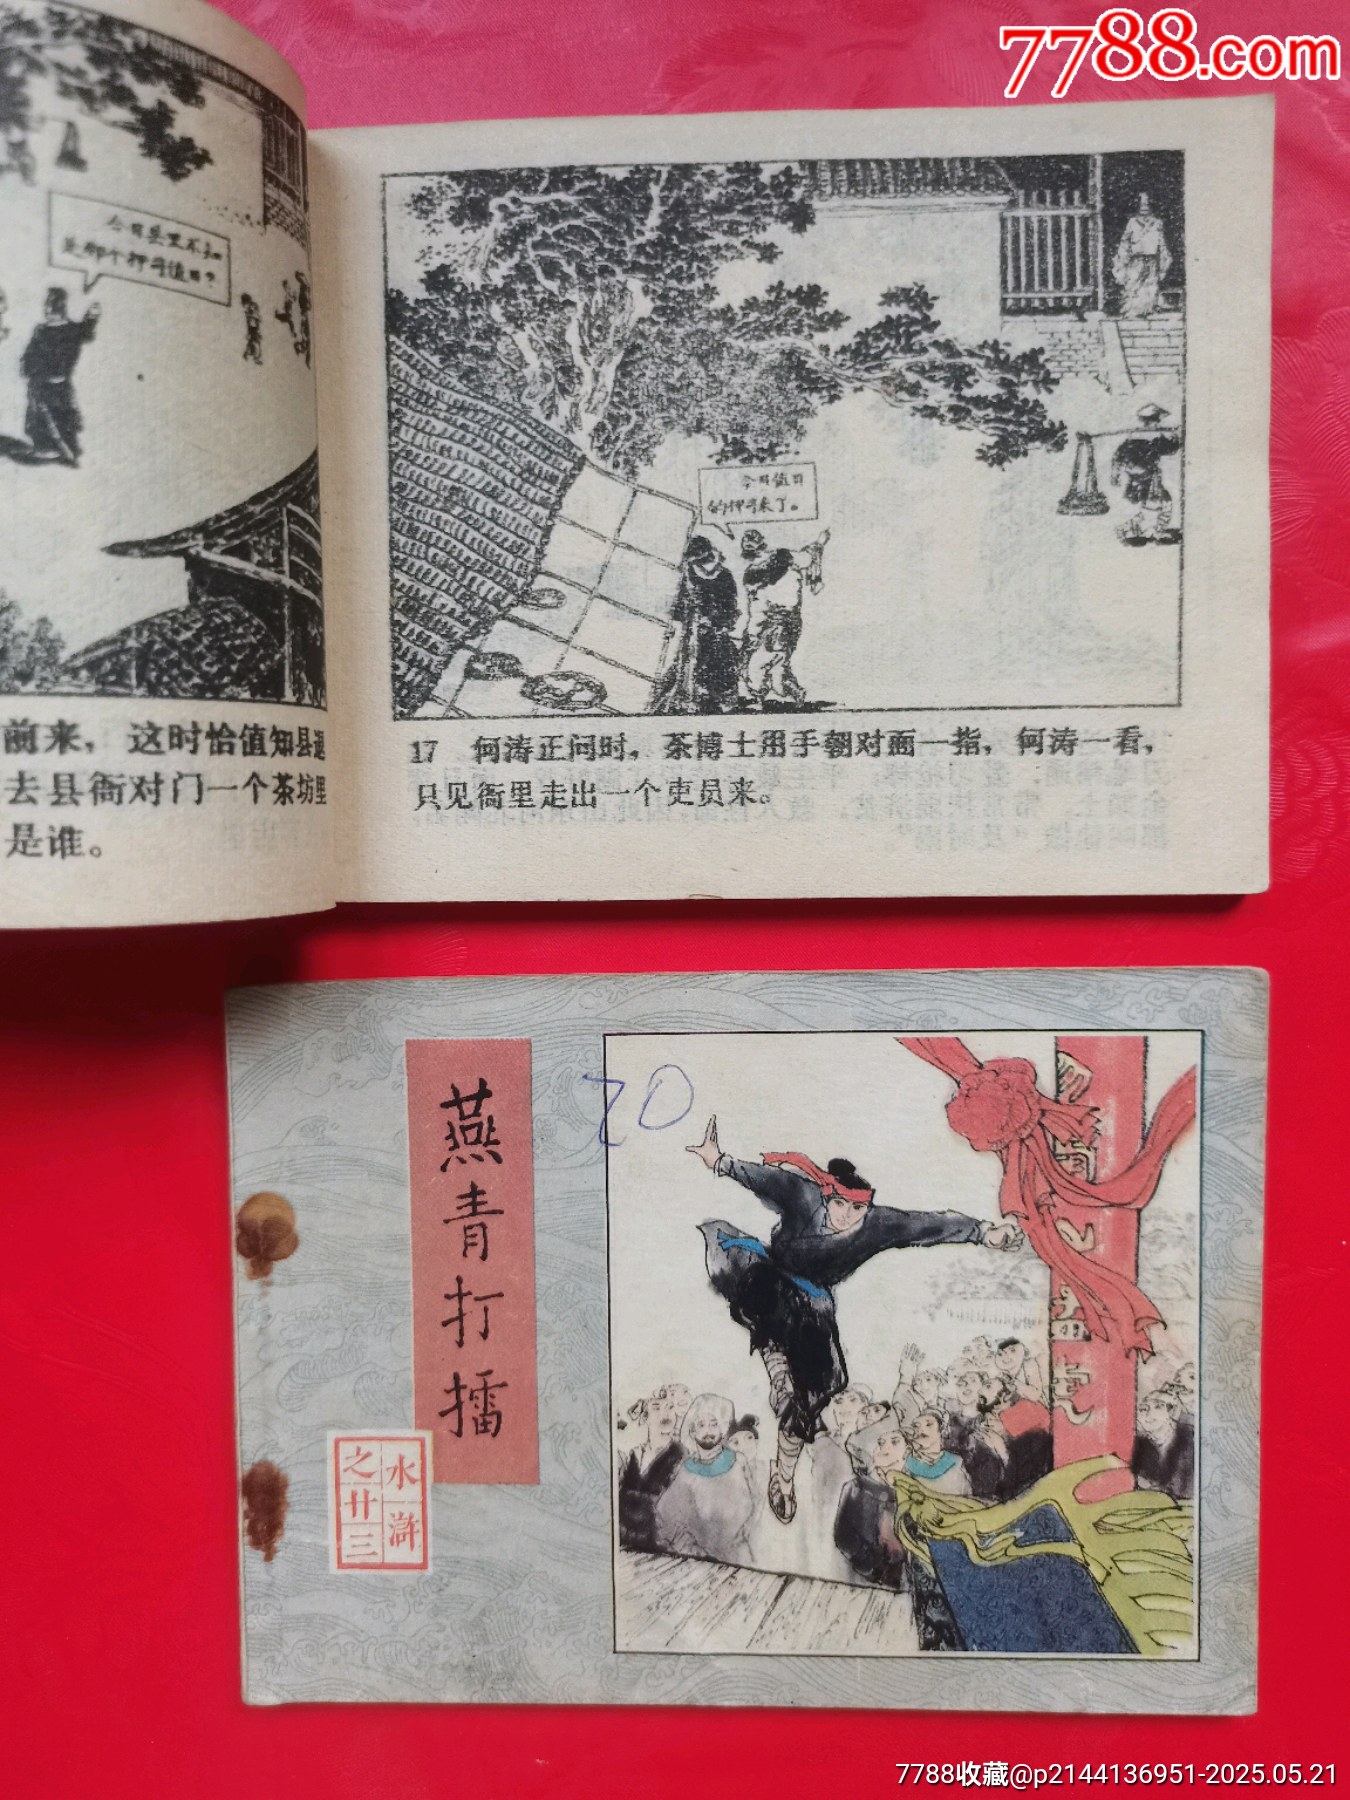 7788.com
今日县里不知
是那个押司值日？
前来，这时恰值知县退
去县衙对门一个茶坊里
是谁。
今日值日
的押司来了。
17 何涛正问时，茶博士用手朝对面一指，何涛一看，
只见衙里走出一个吏员来。
燕青打擂
水浒
之廿三
20
7788收藏@p2144136951-2025.05.21